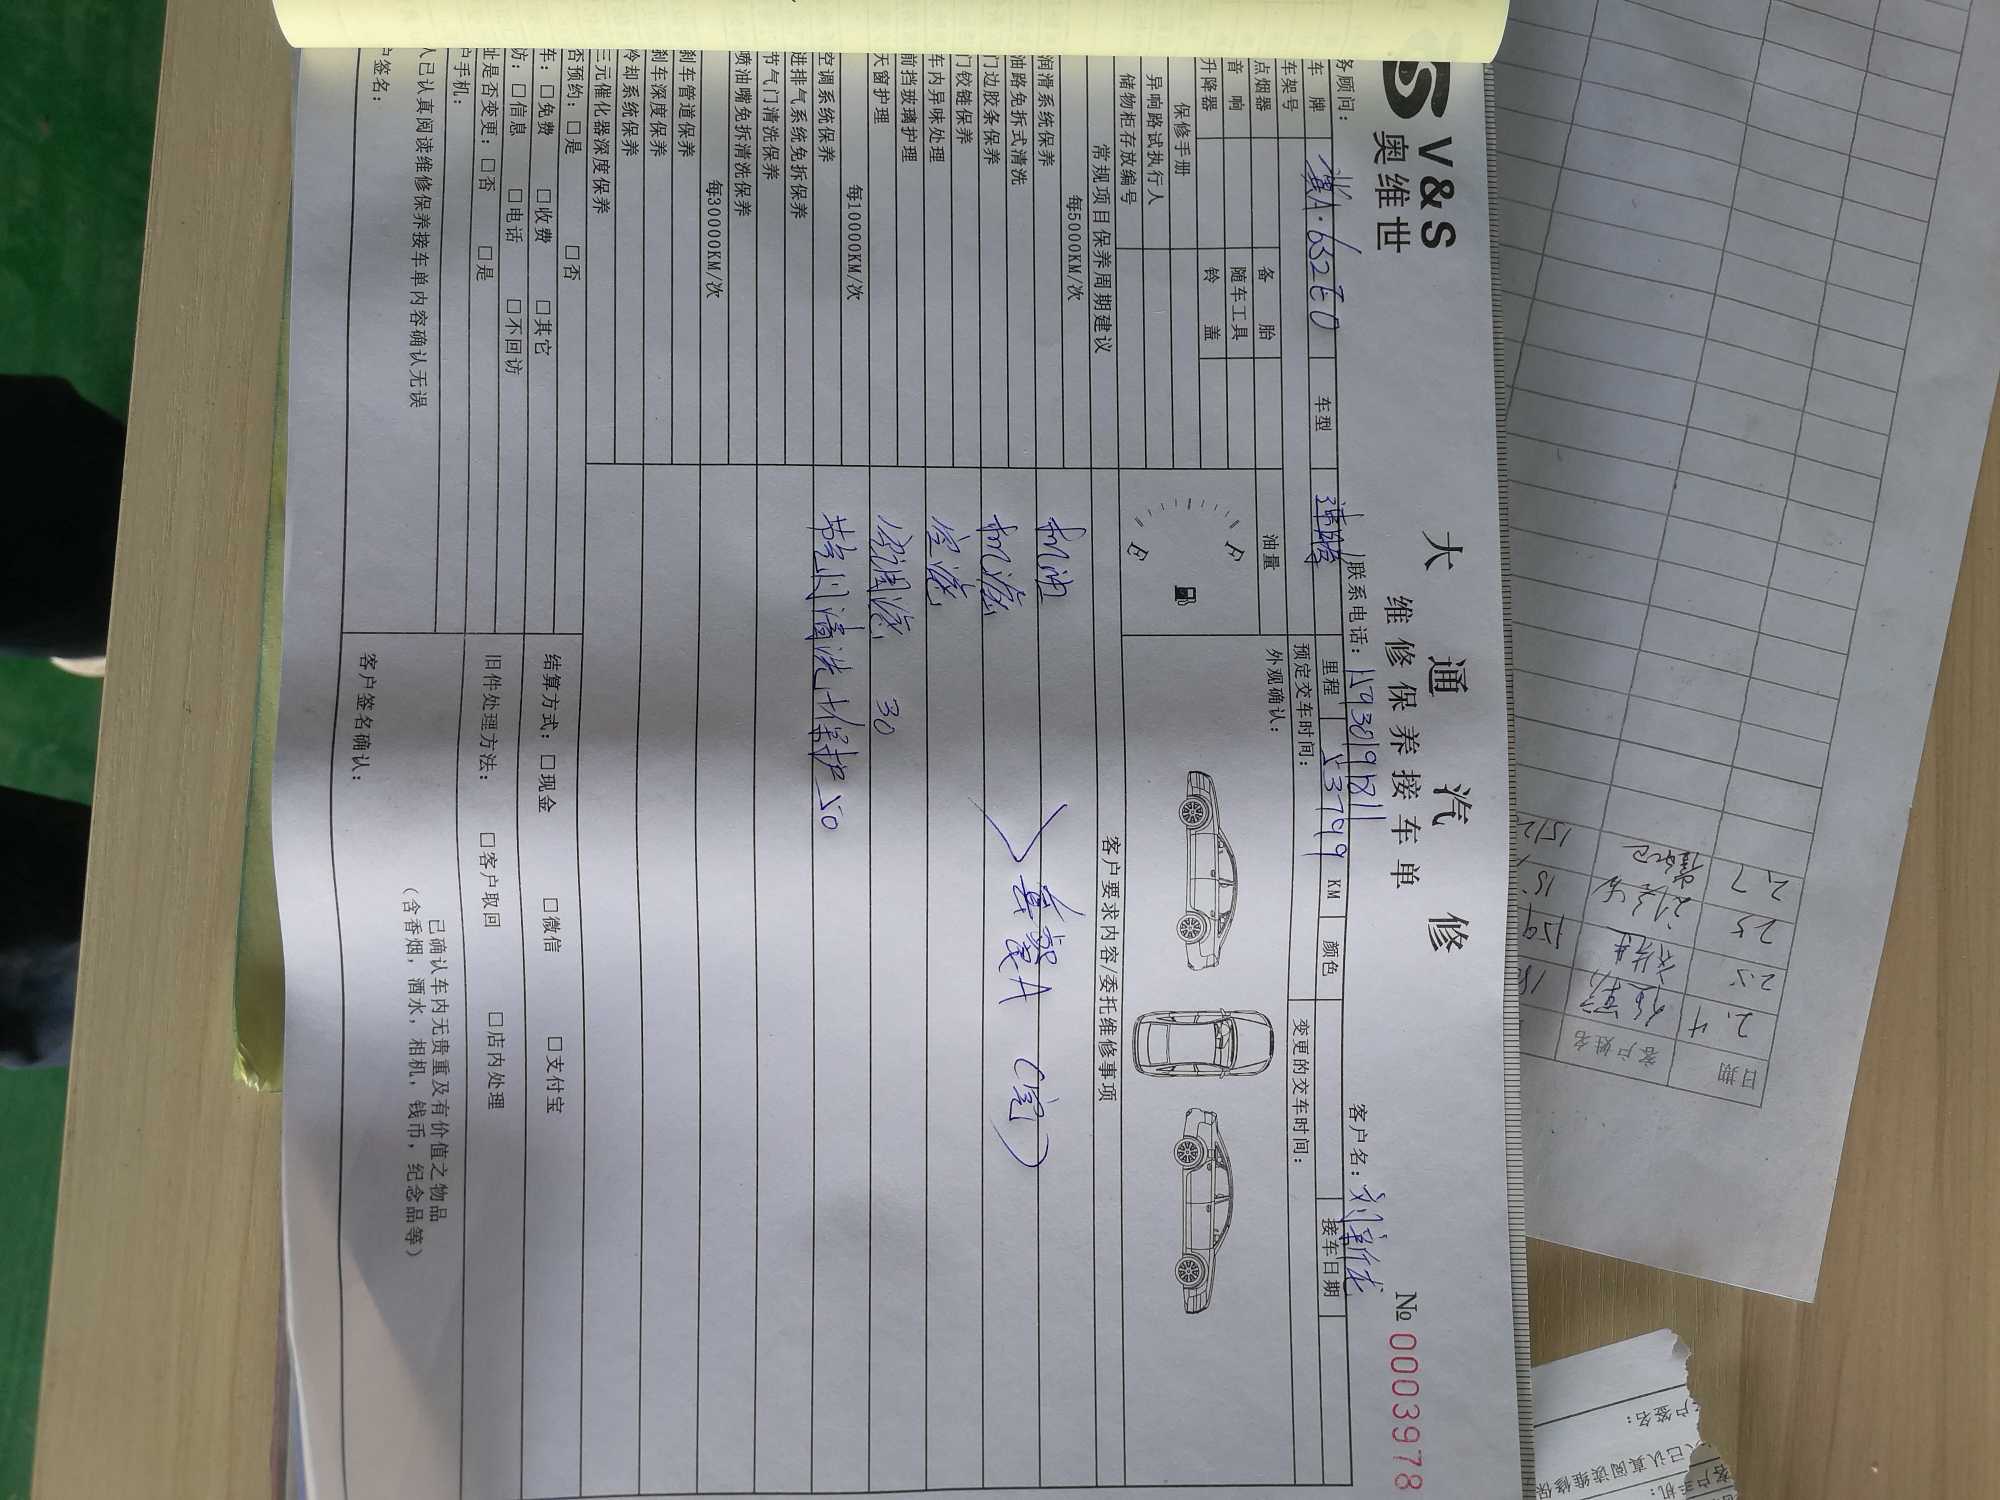 V&S
奥维世
大通汽修
维修保养接车单
№ 0003978
务顾问：
联系电话：
客户名：
车牌 冀A·6S2E0 车型 速腾 里程 53799 KM 颜色 接车日期
车架号
预定交车时间： 变更的交车时间：
点烟器 备胎 油量 外观确认：
音响 随车工具
升降器 铃盖
保修手册
异响路试执行人
储物柜存放编号
常规项目保养周期建议 客户要求内容/委托维修事项
每5000KM/次
润滑系统保养 机油
油路免拆式清洗
门边胶条保养 机滤 (国)
门铰链保养
车内异味处理 空滤
前挡玻璃护理
天窗护理 30
每10000KM/次
空调系统保养 节气门清洗+保护 50
进排气系统免拆保养
节气门清洗保养
喷油嘴免拆清洗保养
每30000KM/次
刹车管道保养
刹车深度保养
冷却系统保养
三元催化器深度保养
否预约：□是 □否
车：□免费 □收费 □其它
访：□信息 □电话 □不回访
址是否变更：□否 □是
户手机：
人已认真阅读维修保养接车单内容确认无误
户签名：
结算方式：□现金 □微信 □支付宝
旧件处理方法：□客户取回 □店内处理
已确认车内无贵重及有价值之物品
（含香烟，酒水，相机，钱币，纪念品等）
客户签名确认：
日期 2.4 2.5 25 2.7
客户姓名
客户签名：
人已认真阅读维修保
客户手机：